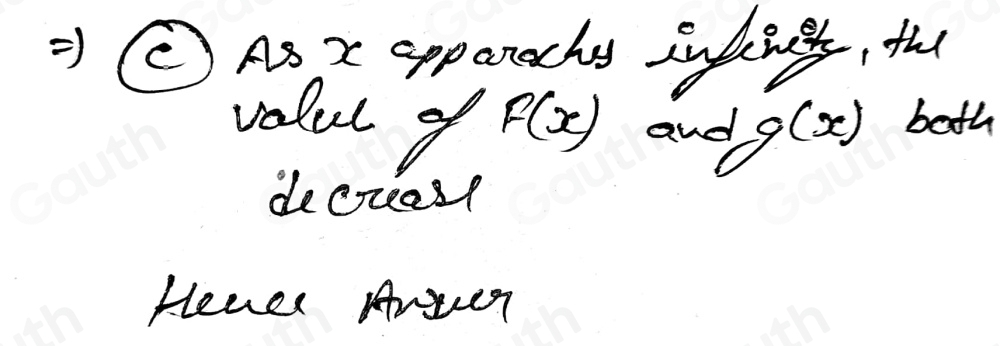 =) (c) As x apparachs infinity, the
value of F(x) and g(x) both
decrease
Hence Answer